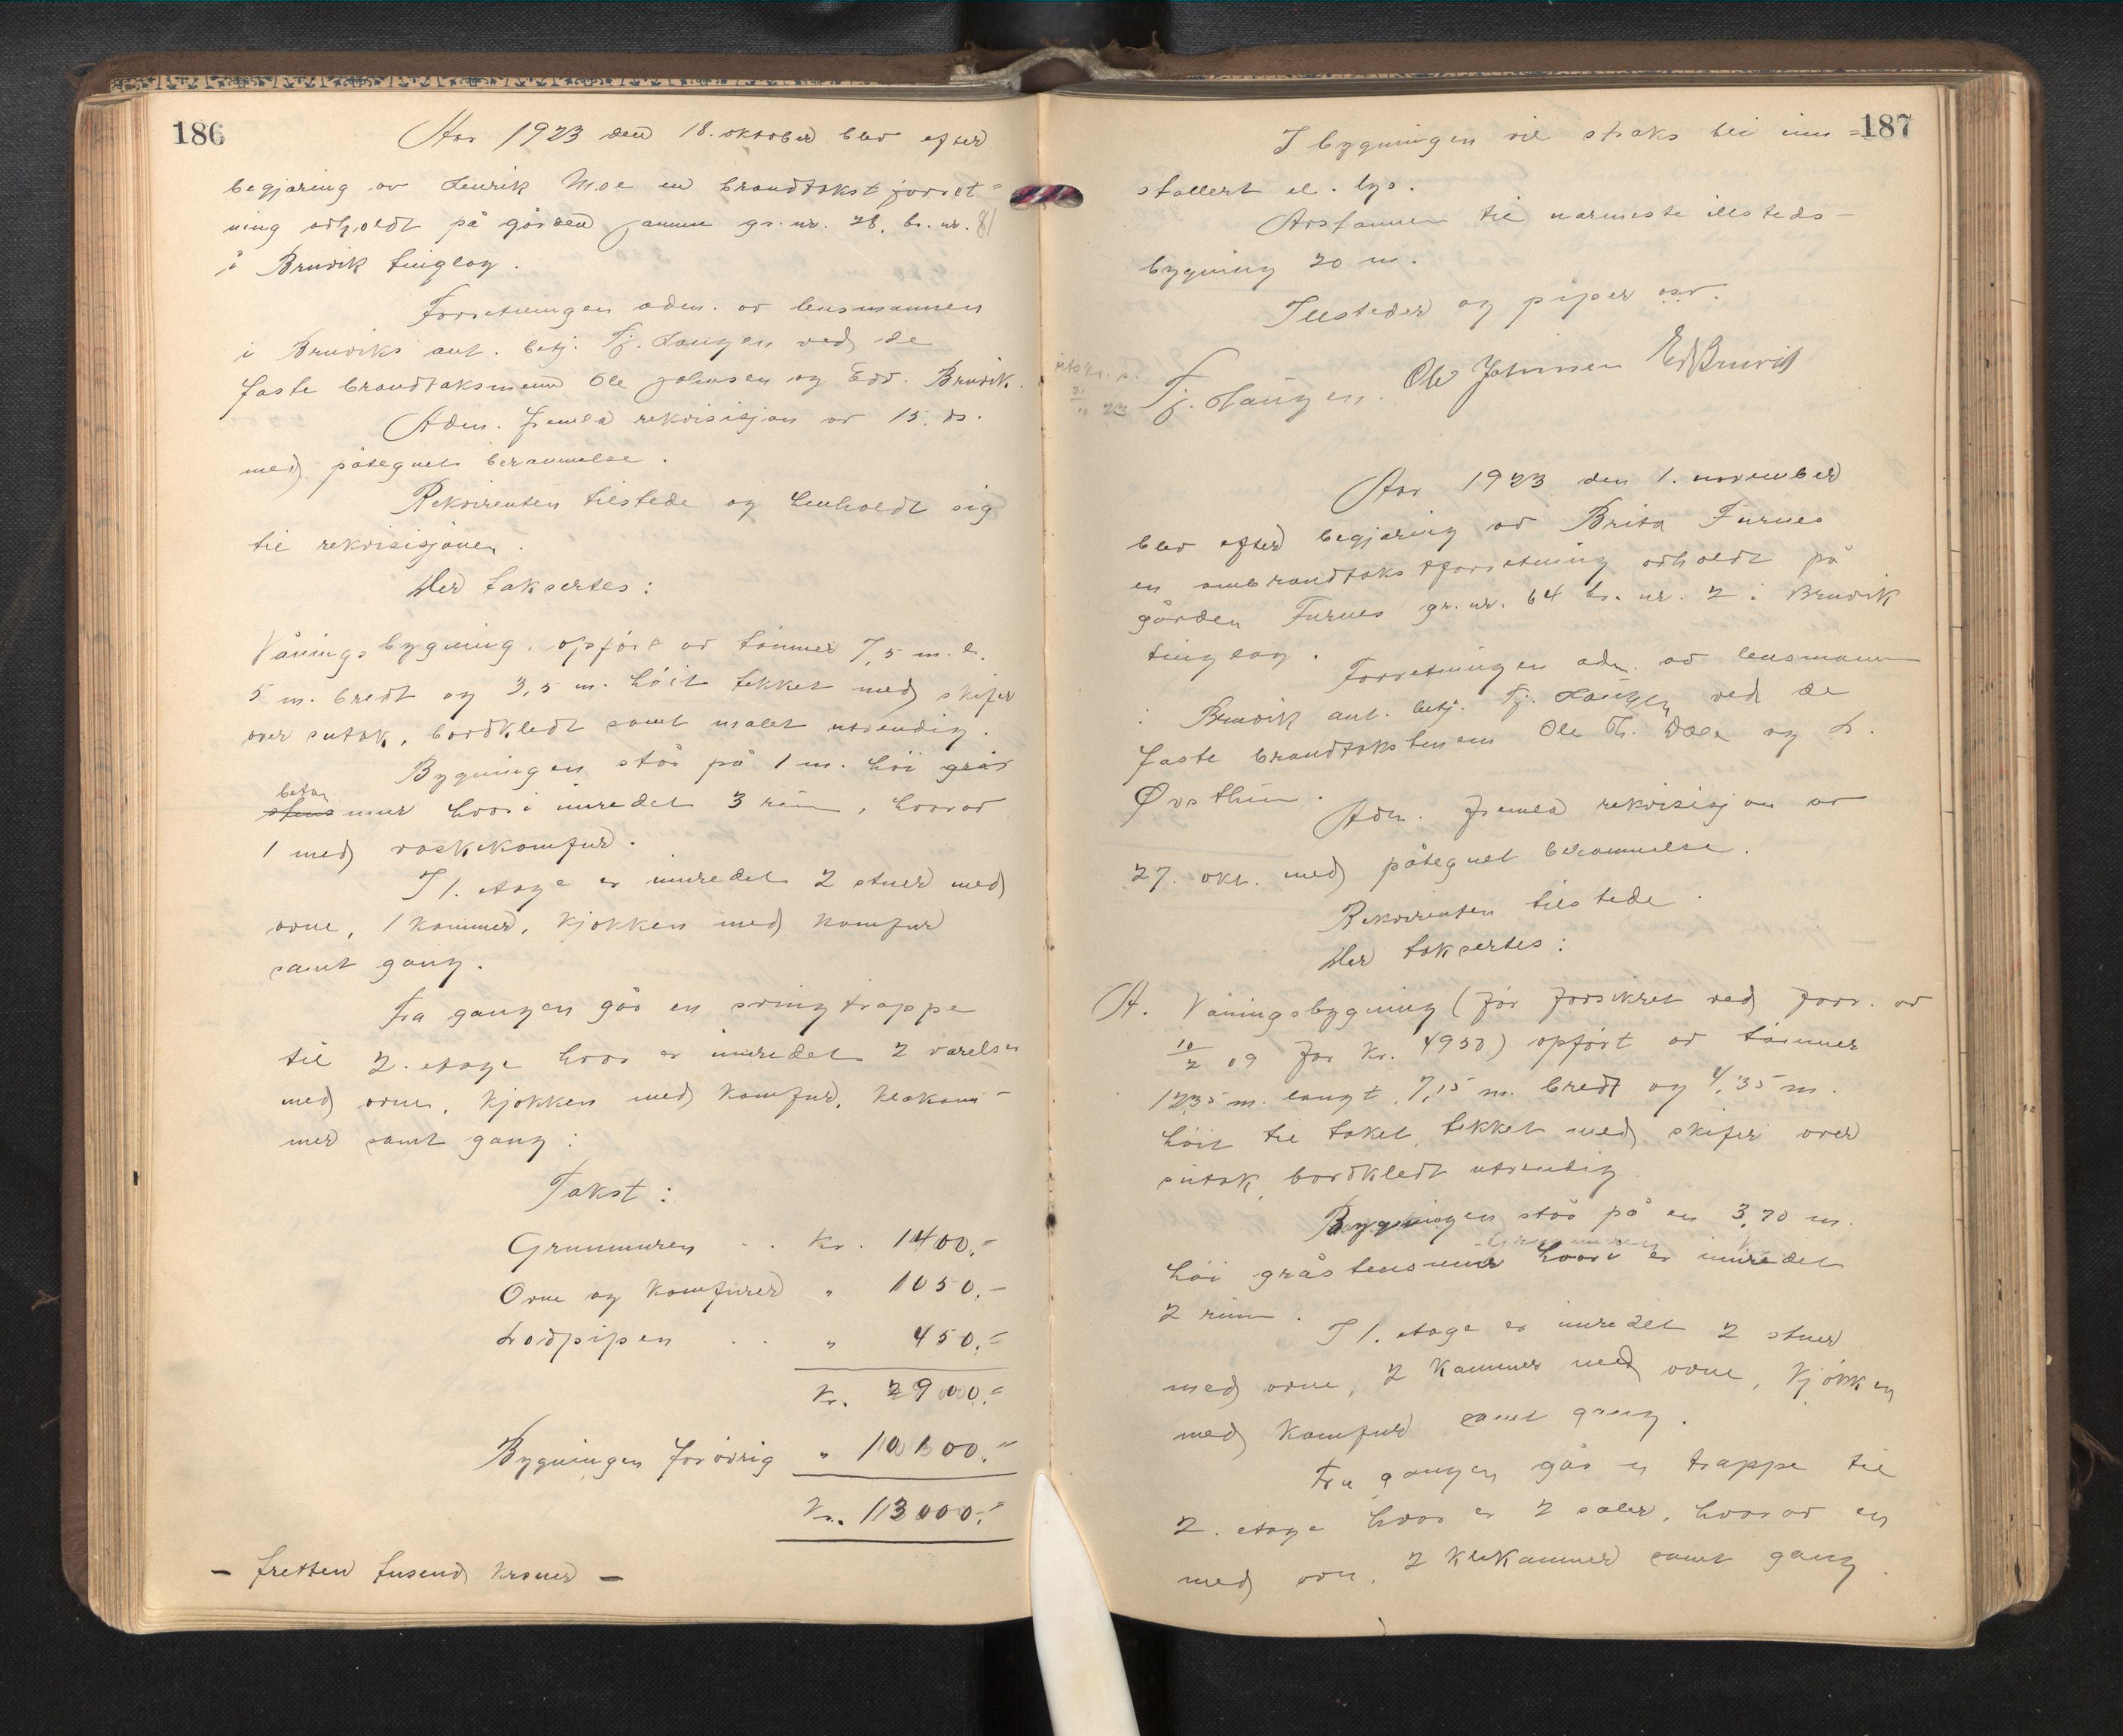 186
Aar 1923 den 18. oktober blev efter
begjæring av Henrik Moe en brandtakstforret=
ning avholdt på gården Jamne gr. nr. 28, br. nr. 81
i Bruvik tinglag.
Forretningen adm. av lensmannen
i Bruviks aut. betj. Fj. Langen ved de
faste brandtaksmenn Ole Johnsen og Edv. Bruvik.
Adm. fremla rekvisisjon av 15. ds.
med påtegnet berammelse.
Rekvirenten tilstede og henholdt sig
til rekvisisjonen.
Her taksertes:
Våningsbygning, opført av tømmer 7,5 m. l.
5 m. bredt og 3,5 m. høit tekket med skifer
over sutak, bordkledt samt malet utvendig.
Bygningen står på 1 m. høi grå
beton
stens mur hvori innredet 3 rum, hvorav
1 med vaskekomfur.
I 1. etage er innredet 2 stuer med
ovne, 1 kammer, kjøkken med komfur
samt gang.
Fra gangen går en svingtrappe
til 2. etage hvor er innredet 2 værelser
med ovne, kjøkken med komfur, klækam=
mer samt gang:
Takst:
Grunnmuren . . kr. 1400,-
Ovne og komfurer " 1050,-
Lodpipen . . " 450,-
Kr. 2900,-
Bygningen forøvrig " 10100,-
Kr. 13000,-
- tretten tusend kroner -
187
I bygningen vil straks bli inn=
stallert el. lys.
Avstannen til nærmeste illsteds-
bygning 20 m.
Illsteder og piper osv.
Fj. Langen. Ole Johnsen Ed Bruvik
31
10 23
Aar 1923 den 1. november
blev efter begjæring av Brita Furnes
en ombrandtakstforretning avholdt på
gården Furnes gr. nr. 64 br. nr. 2 i Bruvik
tinglag.
Forretningen adm. av lensmannen
i Bruvik aut. betj. Fj. Langen ved de
faste brandtakstmenn Ole Th. Dale og L.
Øvsthun.
Adm. fremla rekvisisjon av
27. okt. med påtegnet berammelse.
Rekvirenten tilstede.
Her taksertes:
A. Våningsbygning (før forsikret ved forr. av
10
2 09 for kr. 4950) opført av tømmer
12,35 m. langt, 7,15 m. bredt og 4,35 m.
høit til taket, tekket med skifer over
sutak, bordkledt utvendig
Bygningen står på en 3,70 m.
høi gråstensmur hvori er innredet
2 rum.
I 1. etage er innredet 2 stuer
med ovne, 2 kammer med ovne, kjøkken
med komfur samt gang.
Fra gangen går en trappe til
2. etage hvor er 2 saler, hvorav en
med ovn, 2 klækammer samt gang.